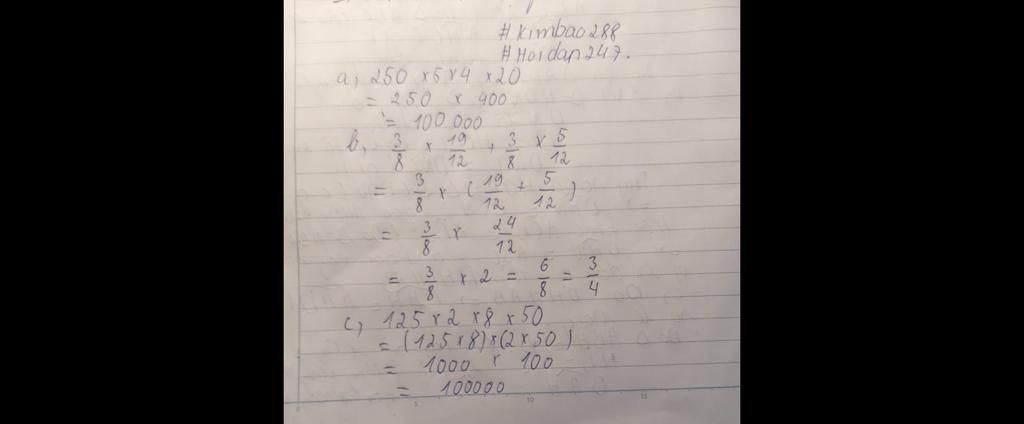 #Kimbao288
#Hoidap247.
a, 250 × 5 × 4 × 20
= 250 × 400
= 100 000
b, 3/8 × 19/12 + 3/8 × 5/12
= 3/8 × ( 19/12 + 5/12 )
= 3/8 × 24/12
= 3/8 × 2 = 6/8 = 3/4
c, 125 × 2 × 8 × 50
= (125 × 8) × (2 × 50)
= 1000 × 100
= 100000
5 10 15